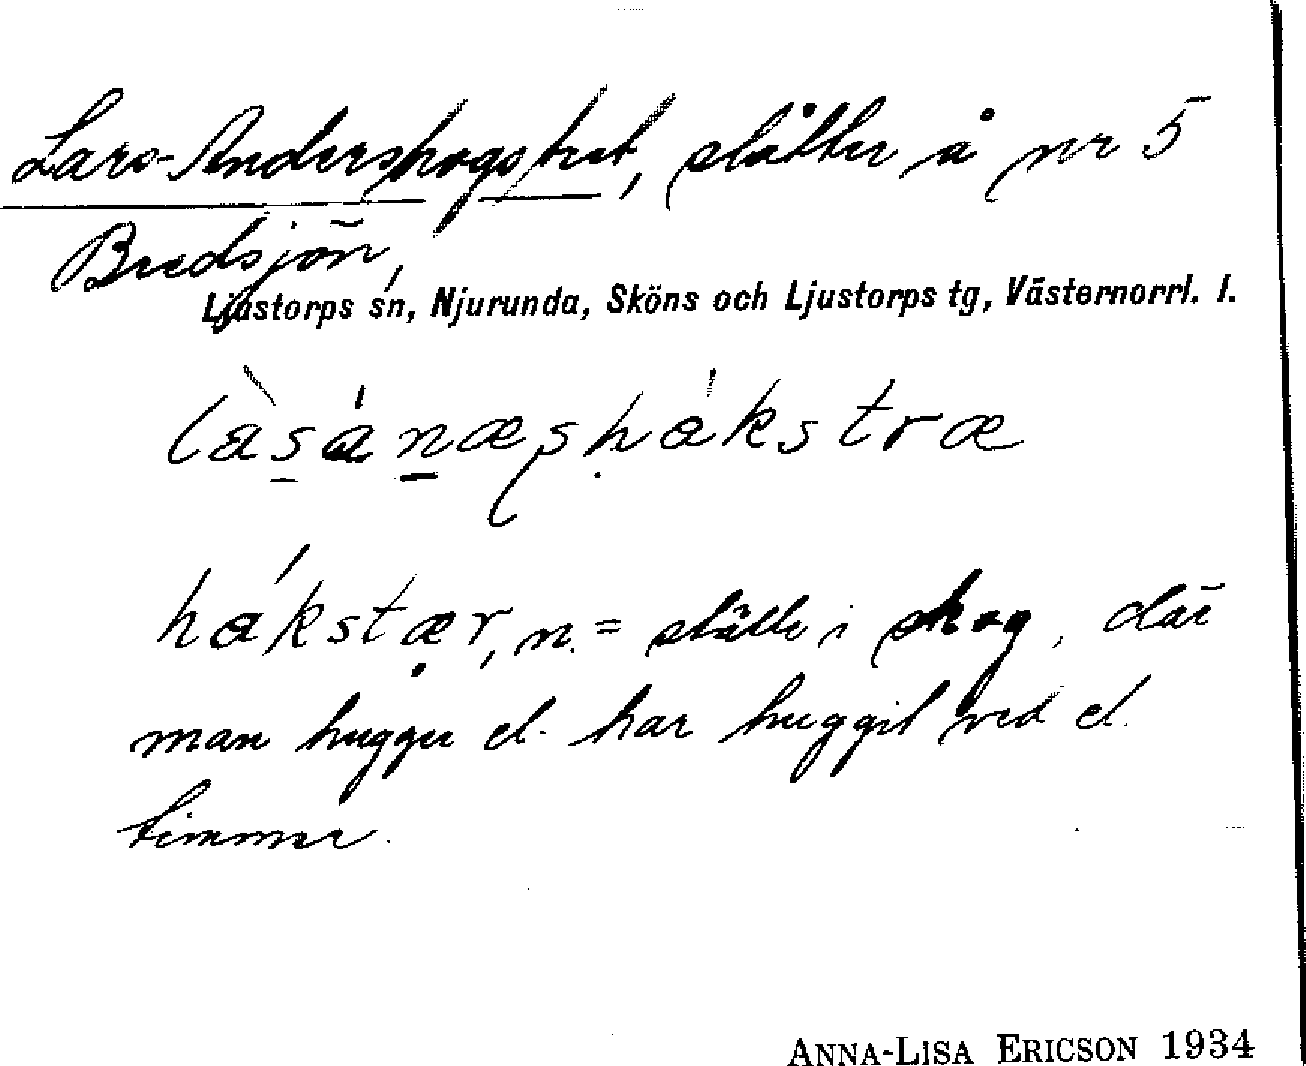 Lars-Andershogstret, slåtter å nr 5
Bredsjön,
Ljustorps sn, Njurunda, Sköns och Ljustorps tg, Västernorrl. l.
làsánæshákstræ
hákstær, n. = ställe i skog, där
man hugger el. har huggit ved el.
timmer.
ANNA-LISA ERICSON 1934